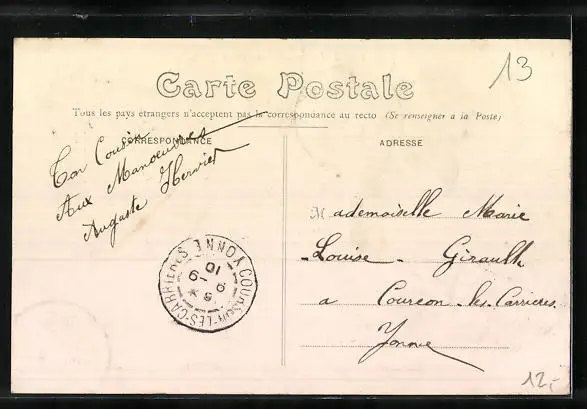 13
Carte Postale
Tous les pays étrangers n'acceptent pas la correspondance au recto (Se renseigner à la Poste)
CORRESPONDANCE
ADRESSE
Ton Cousin
Aux Manoeuvres
Auguste Hervier
Mademoiselle Marie
Louise - Girault
a Courson-les-Carrieres
Yonne
COURSON-LES-CARRIÈRES YONNE
12,-